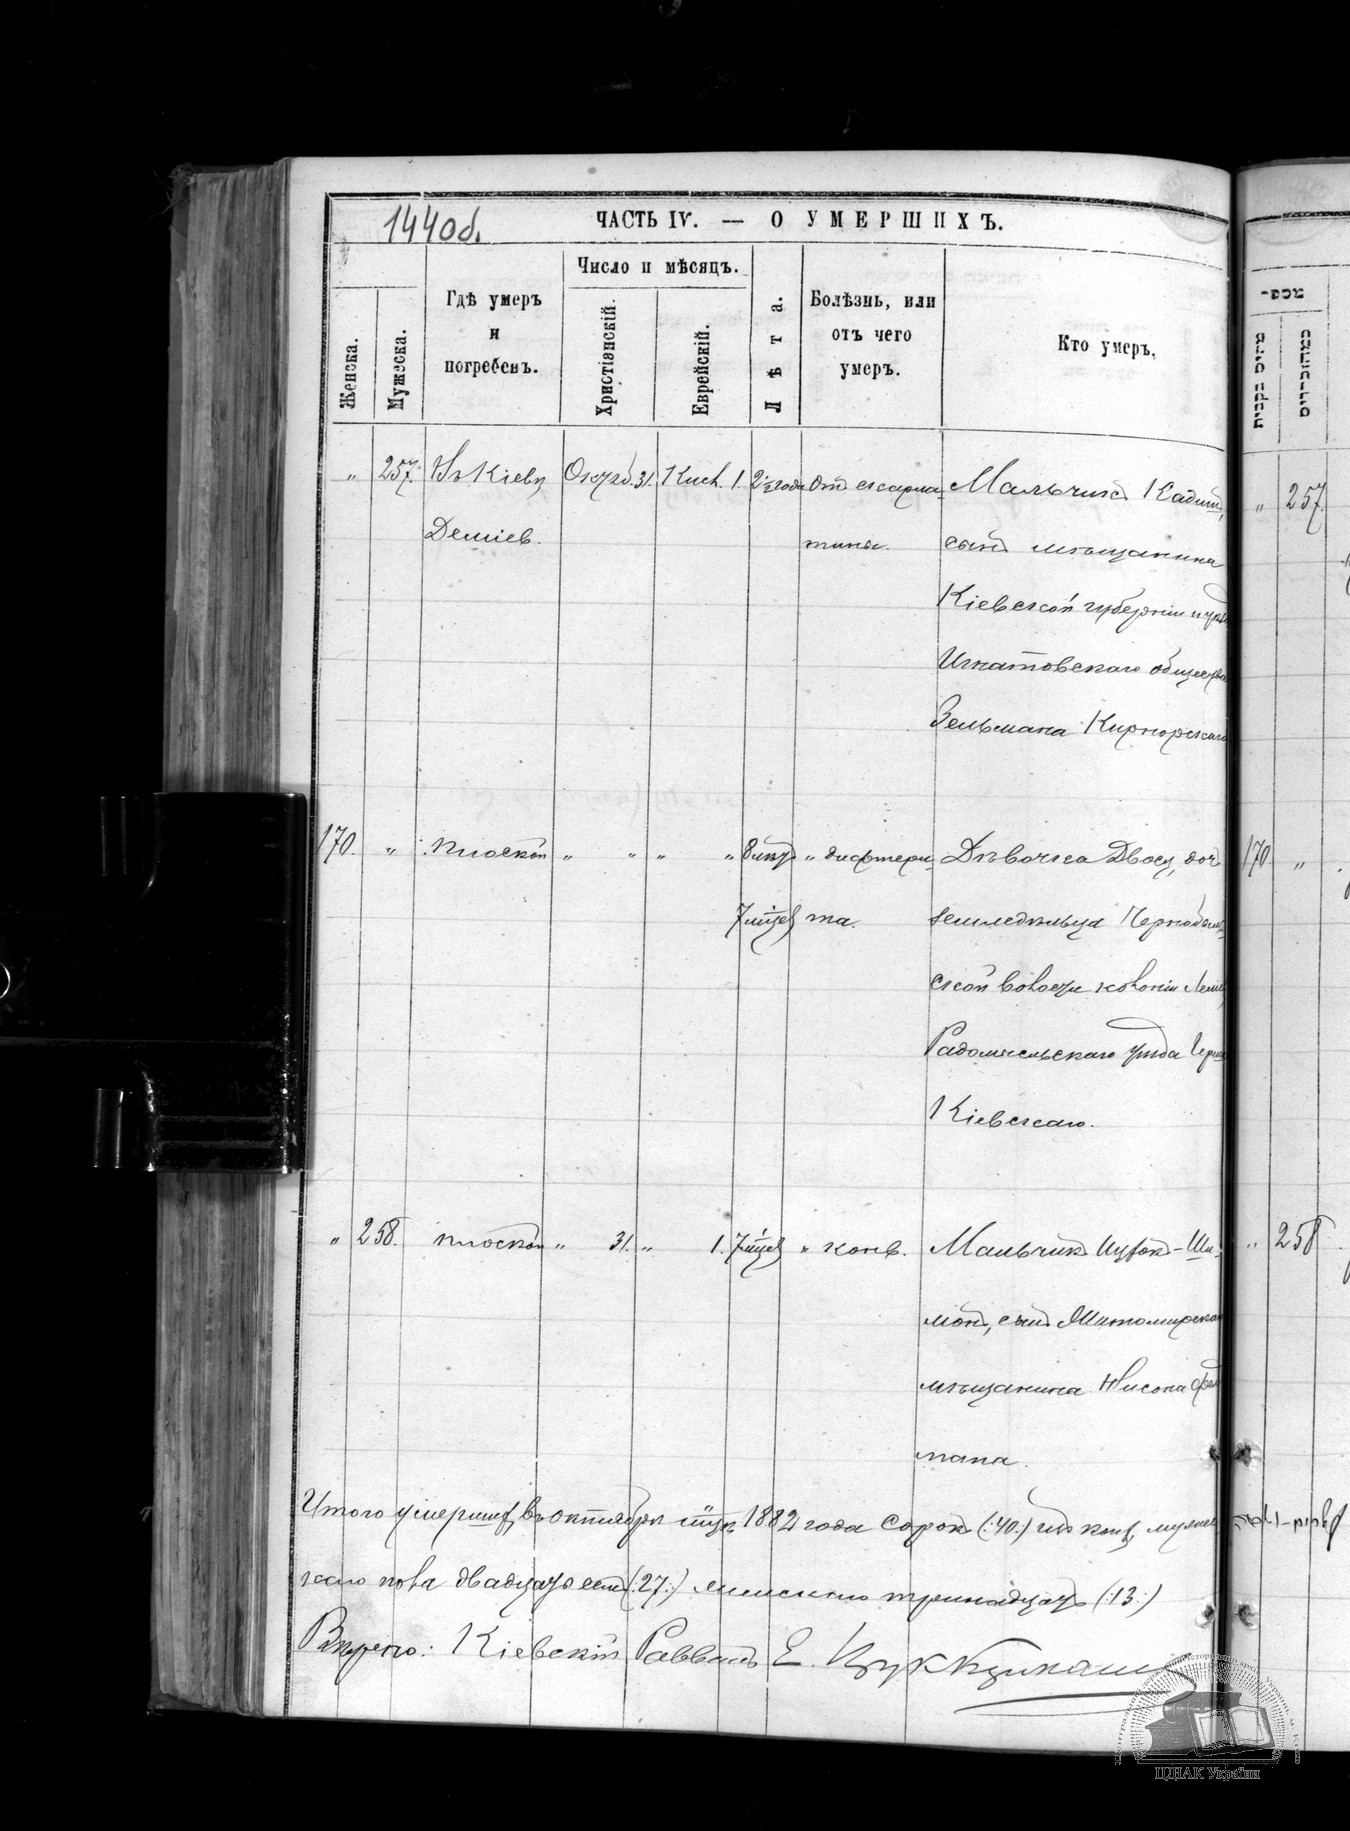 144об.
ЧАСТЬ IV. — О УМЕРШИХЪ.
Женска.
Мужеска.
Гдѣ умеръ
и
погребенъ.
Число и мѣсяцъ.
Христіянскій.
Еврейскій.
Лѣта.
Болѣзнь, или
отъ чего
умеръ.
Кто умеръ.
„ 257. Въ Кіевѣ Октяб. 31. Кисл. 1. 2½ года Отъ скарла- Мальчикъ
Деміев. тины. сынъ мѣщанина
Кіевской губерніи
Игнатовскаго общества
Зельмана
170. „ плоской „ „ „ „ 8 лѣтъ „ дифтери- Дѣвочка Двося, доч
7 мѣсц. та. земледѣльца Чернобыль-
ской волости колоніи
Радомысльскаго уѣзда
Кіевскаго.
„ 258. плоской „ 31. „ 1. 7 мѣсц. „ конв. Мальчикъ Ицхок-Ши-
монъ, сынъ Житомирскаго
мѣщанина Нисона
мана.
Итого умершихъ въ октябрѣ мцѣ 1882 года сорокъ (:40:) изъ коихъ мужес
каго пола двадцать семь (:27:) женскаго тринадцать (:13:)
Вѣрно: Кіевскій Раввинъ Е. Цуккерманъ
מכפ-
257
170 „
„ 258
ЦДІАК України